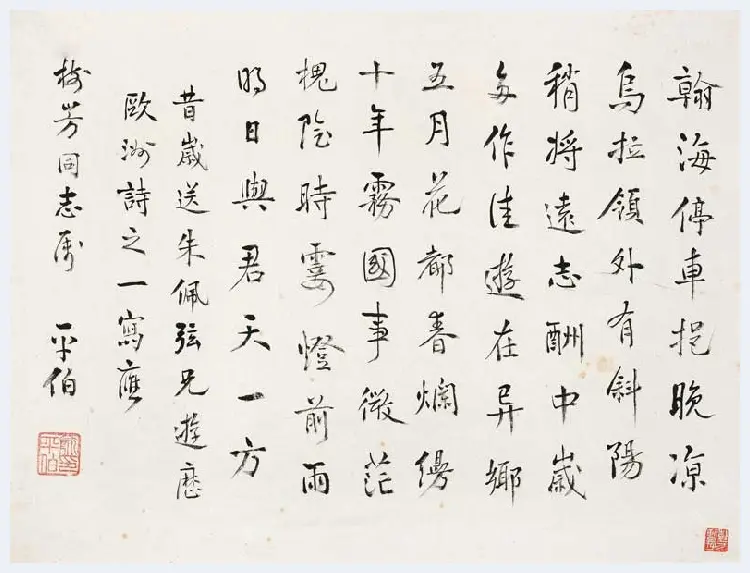 翰海停車挹晚涼
烏拉領外有斜陽
稍將遠志酬中歲
多作佳遊在异鄉
五月花都春爛縵
十年霧國事微茫
槐陰時霎燈前雨
明日與君天一方
昔歲送朱佩弦兄遊歷
歐洲詩之一寫應
樹芳同志屬
平伯